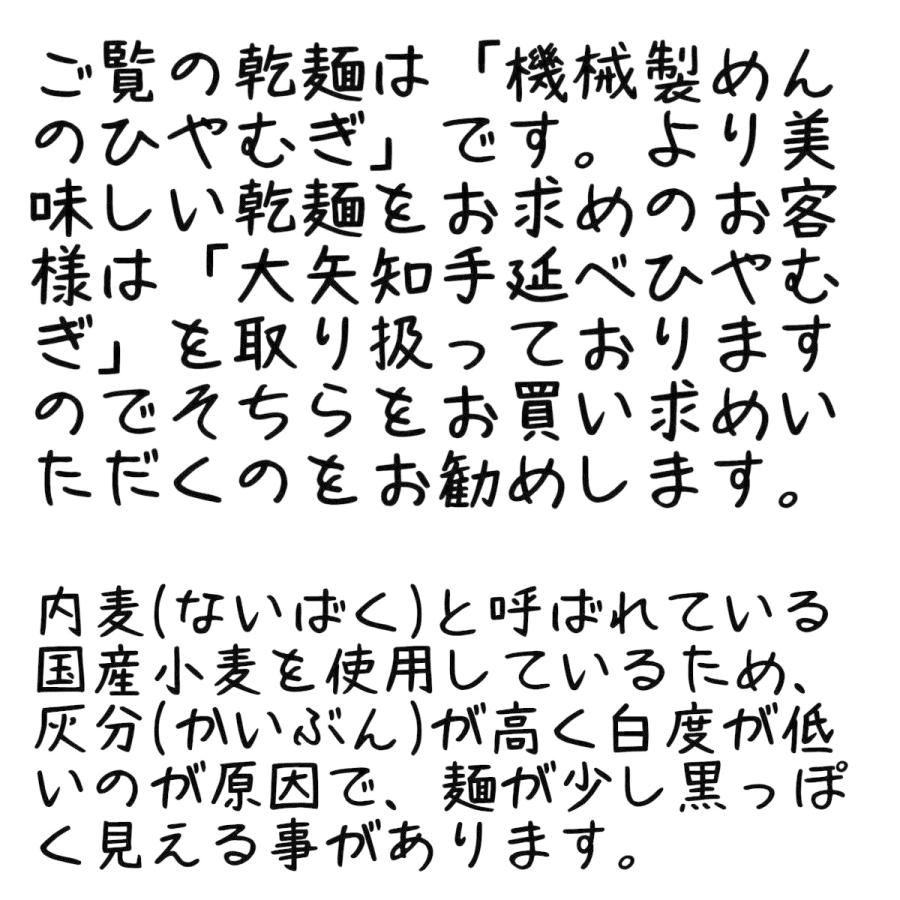 ご覧の乾麺は「機械製めん
のひやむぎ」です。より美
味しい乾麺をお求めのお客
様は「大矢知手延べひやむ
ぎ」を取り扱っております
のでそちらをお買い求めい
ただくのをお勧めします。
内麦(ないばく)と呼ばれている
国産小麦を使用しているため、
灰分(かいぶん)が高く白度が低
いのが原因で、麺が少し黒っぽ
く見える事があります。